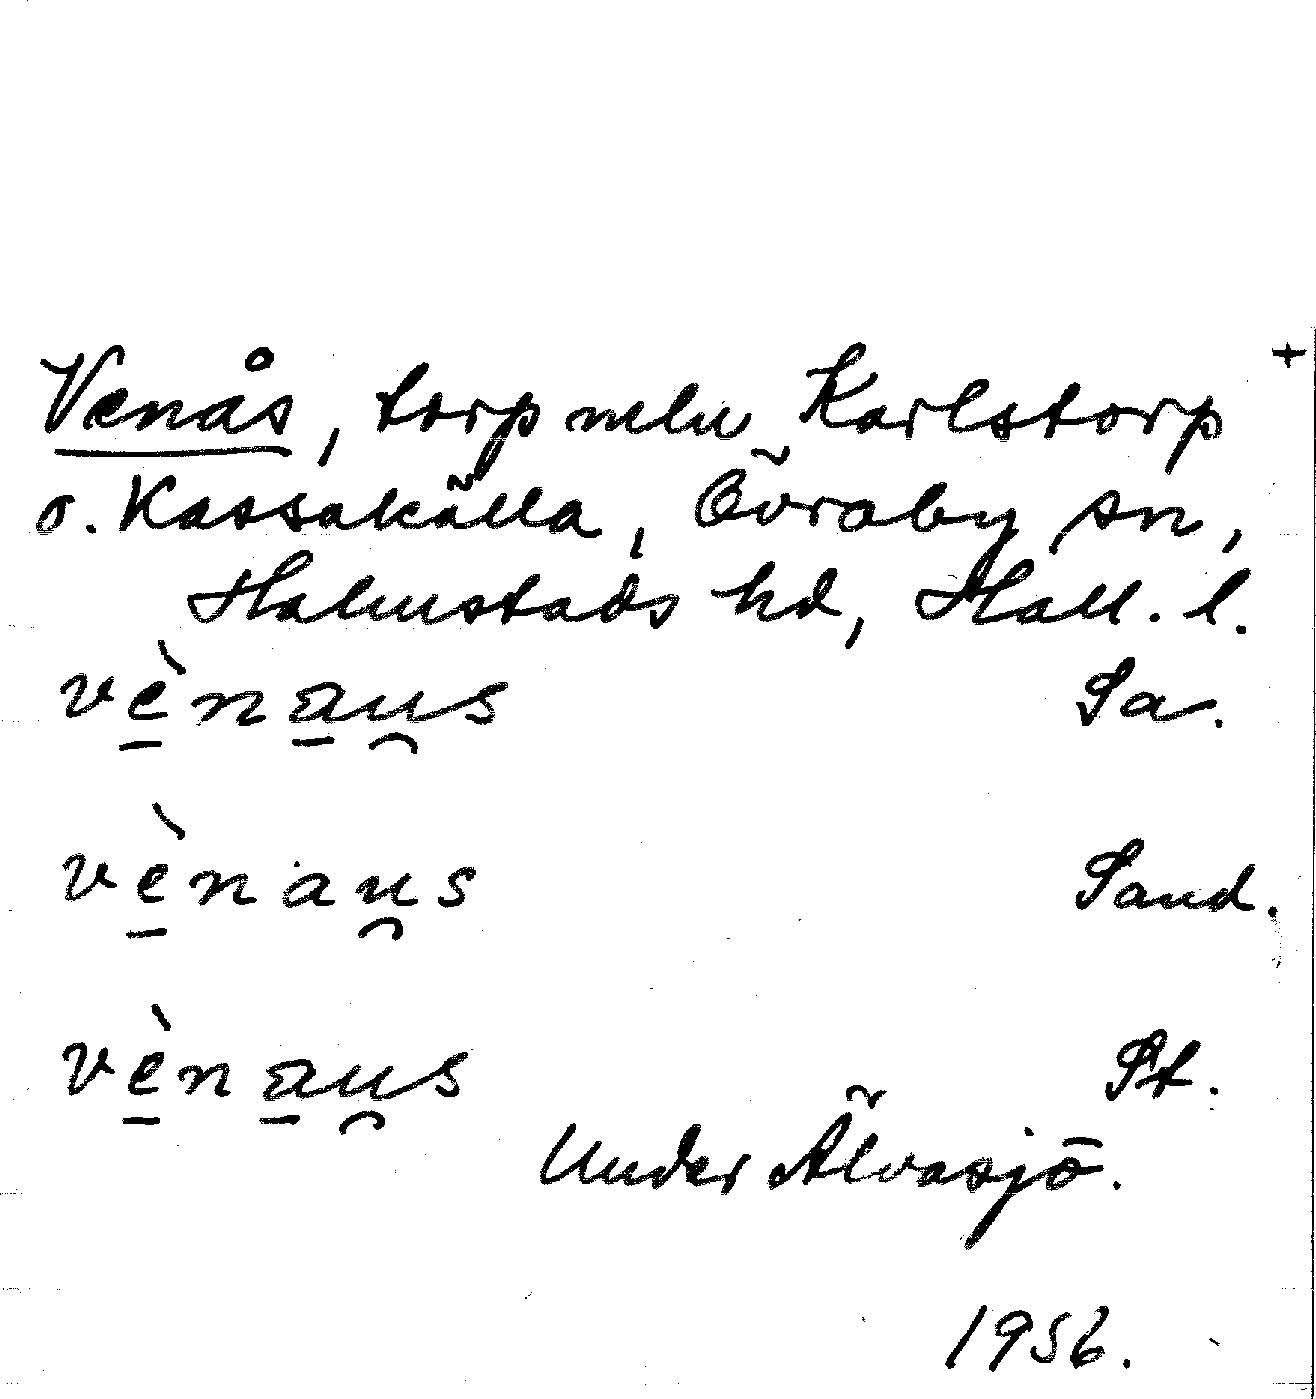 Venås, torp mln Karlstorp +
o. Kassakälla, Övraby sn,
Halmstads hd, Hall. l.
vè̱na̱u̯s Sa.
vè̱nau̯s Sand.
vè̱na̱u̯s St.
Under Älvasjö.
1956.